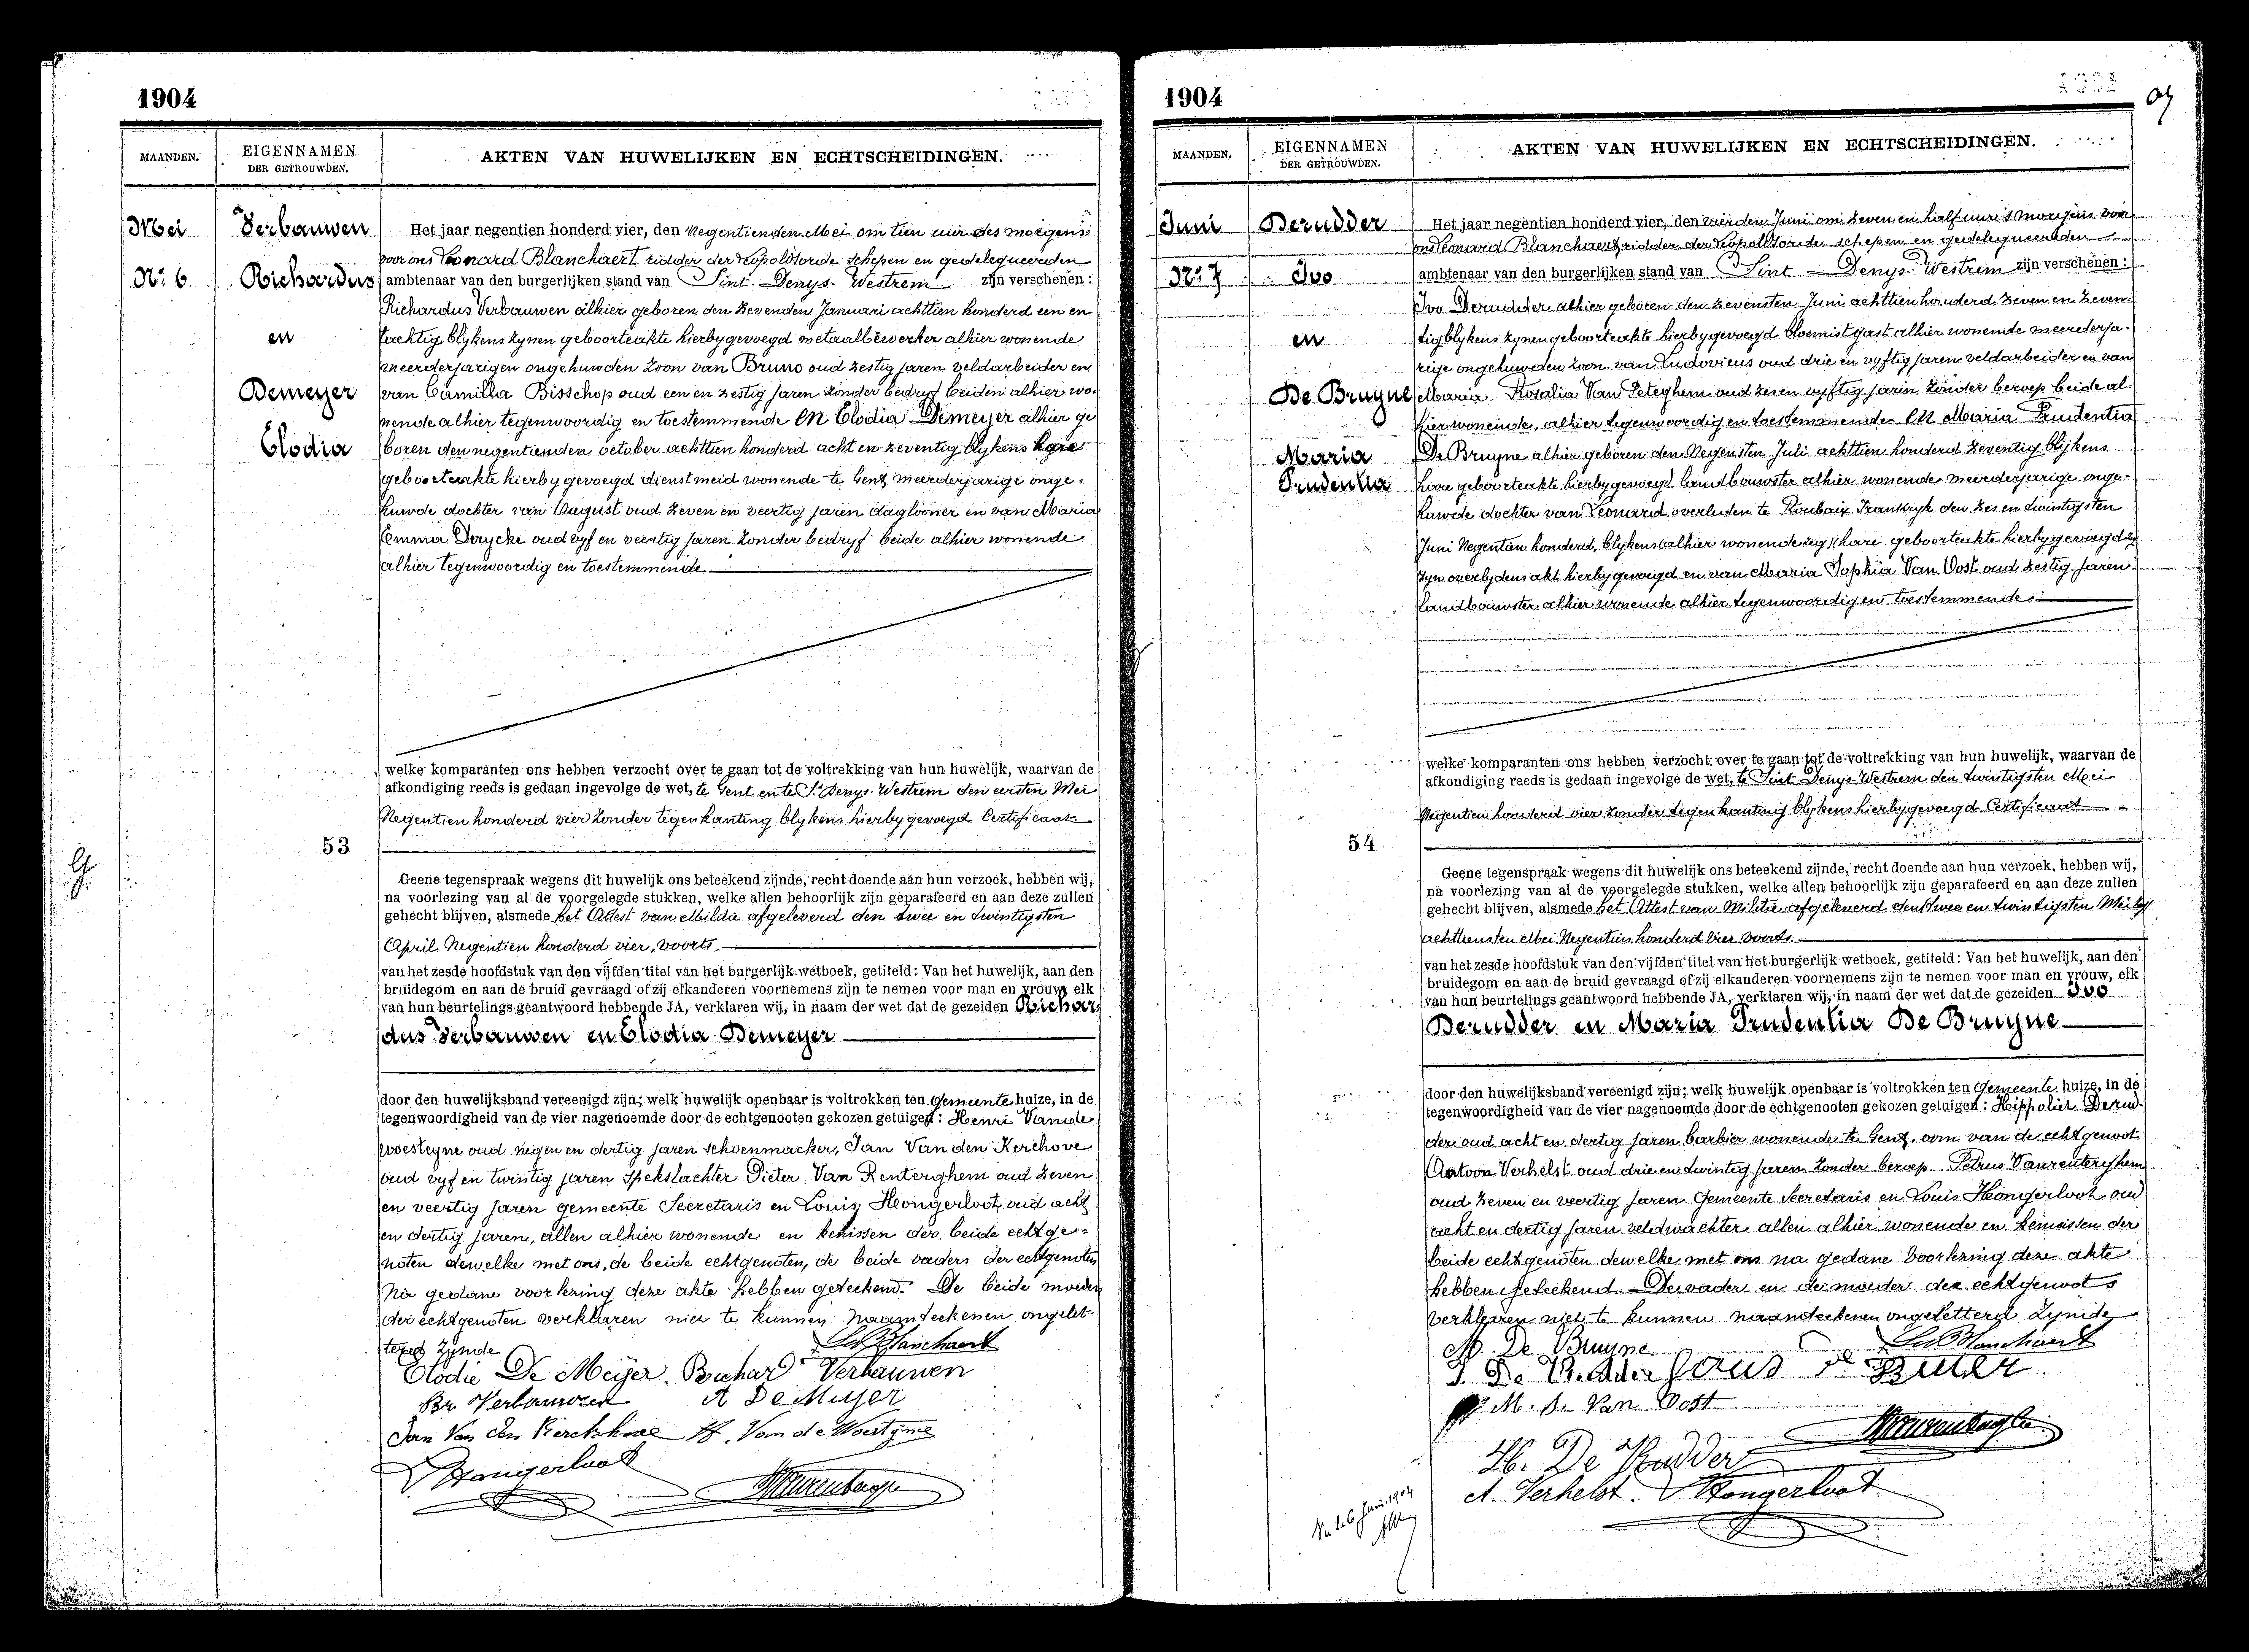 1904
MAANDEN.
EIGENNAMEN
DER GETROUWDEN.
AKTEN VAN HUWELIJKEN EN ECHTSCHEIDINGEN.
Mei
Nr. 6
Verbauwen
Richardus
en
Demeyer
Elodia
Het jaar negentien honderd vier, den negentienden Mei om tien uur des morgens
voor ons Leonard Blanchaert ridder der Leopoldsorde schepen en gedelegueerden
ambtenaar van den burgerlijken stand van Sint-Denys-Westrem zijn verschenen:
Richardus Verbauwen alhier geboren den zevenden Januari achttien honderd een en
tachtig blykens zynen geboorteakte hierbygevoegd metaalbewerker alhier wonende
meerderjarigen ongehuwden zoon van Bruno oud zestig jaren veldarbeider en
van Camilla Bisschop oud een en zestig jaren zonder bedryf beiden alhier wo-
nende alhier tegenwoordig en toestemmende EN Elodia Demeyer alhier ge
boren den negentienden october achttien honderd acht en zeventig blykens hare
geboorteakte hierbygevoegd dienstmeid wonende te Gent meerderjarige onge-
huwde dochter van August oud zeven en veertig jaren daglooner en van Maria
Emma Derycke oud vyf en veertig jaren zonder bedryf beide alhier wonende
alhier tegenwoordig en toestemmende
welke komparanten ons hebben verzocht over te gaan tot de voltrekking van hun huwelijk, waarvan de
afkondiging reeds is gedaan ingevolge de wet, te Gent en te St Denys-Westrem den eersten Mei
Negentien honderd vier zonder tegenkanting blykens hierbygevoegd Certificaat
53
Geene tegenspraak wegens dit huwelijk ons beteekend zijnde, recht doende aan hun verzoek, hebben wij,
na voorlezing van al de voorgelegde stukken, welke allen behoorlijk zijn geparafeerd en aan deze zullen
gehecht blijven, alsmede het Attest van Militie afgeleverd den twee en twintigsten
April Negentien honderd vier, voorts
van het zesde hoofdstuk van den vijfden titel van het burgerlijk wetboek, getiteld: Van het huwelijk, aan den
bruidegom en aan de bruid gevraagd of zij elkanderen voornemens zijn te nemen voor man en vrouw, elk
van hun beurtelings geantwoord hebbende JA, verklaren wij, in naam der wet dat de gezeiden Richar
dus Verbauwen en Elodia Demeyer
door den huwelijksband vereenigd zijn; welk huwelijk openbaar is voltrokken ten Gemeente huize, in de
tegenwoordigheid van de vier nagenoemde door de echtgenooten gekozen getuigen: Henri Vande
woesteyne oud negen en dertig jaren schoenmacker, Jan Van den Kerchove
oud vyf en twintig jaren Spekslachter Pieter Van Renterghem oud zeven
en veertig jaren gemeente Secretaris en Louis Hongerloot oud acht
en dertig jaren, allen alhier wonende en kenissen der beide echtge-
noten dewelke met ons, de beide echtgenoten, de beide vaders der echtgenoten
na gedane voorlezing deze akte hebben geteekend. De beide moeders
der echtgenoten verklaren niet te kunnen naamteekenen ongelet-
terd zynde
Elodie De Meijer Richard Verbauwen
Br. Verbauwen A De Meyer
Jan Van den Kerckhove H. Van de Woestyne
L Hongerloot
1904
MAANDEN.
EIGENNAMEN
DER GETROUWDEN.
AKTEN VAN HUWELIJKEN EN ECHTSCHEIDINGEN.
Juni
Nr. 7
Derudder
Ivo
en
De Bruyne
Maria
Prudentia
Het jaar negentien honderd vier, den vierden Juni om zeven en half uur 's morgens voor
ons Leonard Blanchaert ridder der Leopoldsorde schepen en gedelegueerden
ambtenaar van den burgerlijken stand van Sint-Denys-Westrem zijn verschenen:
Ivo Derudder alhier geboren den zevensten Juni achttienhonderd zeven en zeven-
tig blykens zynen geboorteakte hierbygevoegd bloemistgast alhier wonende meerderja-
rige ongehuwden zoon van Ludovicus oud drie en vyftig jaren veldarbeider en van
Maria Rosalia Van Peteghem oud zes en vyftig jaren zonder beroep beide al-
hier wonende, alhier tegenwoordig en toestemmende EN Maria Prudentia
De Bruyne alhier geboren den Negensten Juli achttien honderd zeventig blijkens
hare geboorteakte hierbygevoegd landbouwster alhier wonende meerderjarige onge-
huwde dochter van Leonard overleden te Roubaix Frankryk den zes en twintigsten
Juni Negentien honderd, blykens (alhier wonende zeg) hare geboorteakte hierbygevoegd
zyn overlydens akt hierbygevoegd en van Maria Sophia Van Oost oud zestig jaren
landbouwster alhier wonende alhier tegenwoordig en toestemmende
welke komparanten ons hebben verzocht over te gaan tot de voltrekking van hun huwelijk, waarvan de
afkondiging reeds is gedaan ingevolge de wet, te Sint Denys-Westrem den twintigsten Mei
Negentien honderd vier zonder tegenkanting blykens hierbygevoegd Certificaat
54
Geene tegenspraak wegens dit huwelijk ons beteekend zijnde, recht doende aan hun verzoek, hebben wij,
na voorlezing van al de voorgelegde stukken, welke allen behoorlijk zijn geparafeerd en aan deze zullen
gehecht blijven, alsmede het Attest van Militie afgeleverd den twee en twintigsten Mei
achttiensten Mei Negentien honderd Vier voorts.
van het zesde hoofdstuk van den vijfden titel van het burgerlijk wetboek, getiteld: Van het huwelijk, aan den
bruidegom en aan de bruid gevraagd of zij elkanderen voornemens zijn te nemen voor man en vrouw, elk
van hun beurtelings geantwoord hebbende JA, verklaren wij, in naam der wet dat de gezeiden Ivo
Derudder en Maria Prudentia De Bruyne
door den huwelijksband vereenigd zijn; welk huwelijk openbaar is voltrokken ten Gemeente huize, in de
tegenwoordigheid van de vier nagenoemde door de echtgenooten gekozen getuigen: Hippoliet Derud-
der oud acht en dertig jaren barbier wonende te Gent, oom van de echtgenoot
Antoon Verhelst oud drie en twintig jaren zonder beroep Petrus Vanrenterghem
oud zeven en veertig jaren Gemeente Secretaris en Louis Hongerloot oud
acht en dertig jaren veldwachter allen alhier wonende en kennissen der
beide echtgenoten dewelke met ons na gedane voorlezing deze akte
hebben geteekend. De vader en de moeder der echtgenoots
verklaren niet te kunnen naamteekenen ongeletterd zynde
M. De Bruyne
M. S. Van Oost
H. De Rudder
A. Verhelst. L Hongerloot
6 Juin 1904